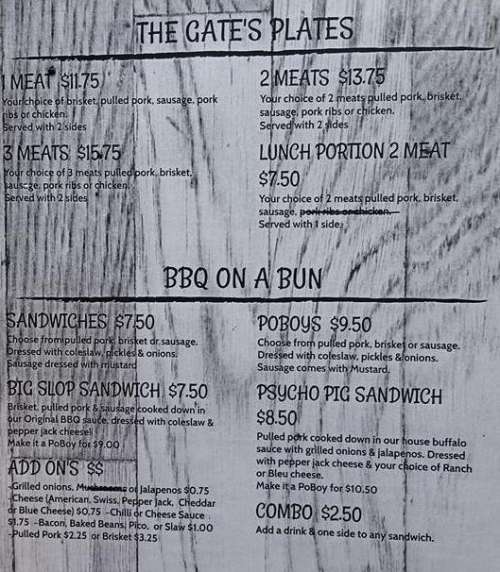 THE GATE'S PLATES
1 MEAT $11.75
Your choice of brisket, pulled pork, sausage, pork
ribs or chicken.
Served with 2 sides
3 MEATS $15.75
Your choice of 3 meats pulled pork, brisket,
sausage, pork ribs or chicken.
Served with 2 sides
2 MEATS $13.75
Your choice of 2 meats pulled pork, brisket,
sausage, pork ribs or chicken.
Served with 2 sides
LUNCH PORTION 2 MEAT
$7.50
Your choice of 2 meats pulled pork, brisket,
sausage, pork ribs or chicken.
Served with 1 side.
BBQ ON A BUN
SANDWICHES $7.50
Choose from pulled pork, brisket or sausage.
Dressed with coleslaw, pickles & onions.
Sausage dressed with mustard
BIG SLOP SANDWICH $7.50
Brisket, pulled pork & sausage cooked down in
our Original BBQ sauce, dressed with coleslaw &
pepper jack cheese!
Make it a PoBoy for $9.00
ADD ON'S $$
-Grilled onions, Mushrooms or Jalapenos $0.75
-Cheese (American, Swiss, Pepper Jack, Cheddar
or Blue Cheese) $0.75 -Chili or Cheese Sauce
$1.75 -Bacon, Baked Beans, Pico, or Slaw $1.00
-Pulled Pork $2.25 or Brisket $3.25
POBOYS $9.50
Choose from pulled pork, brisket or sausage.
Dressed with coleslaw, pickles & onions.
Sausage comes with Mustard.
PSYCHO PIG SANDWICH
$8.50
Pulled pork cooked down in our house buffalo
sauce with grilled onions & jalapenos. Dressed
with pepper jack cheese & your choice of Ranch
or Bleu cheese.
Make it a PoBoy for $10.50
COMBO $2.50
Add a drink & one side to any sandwich.